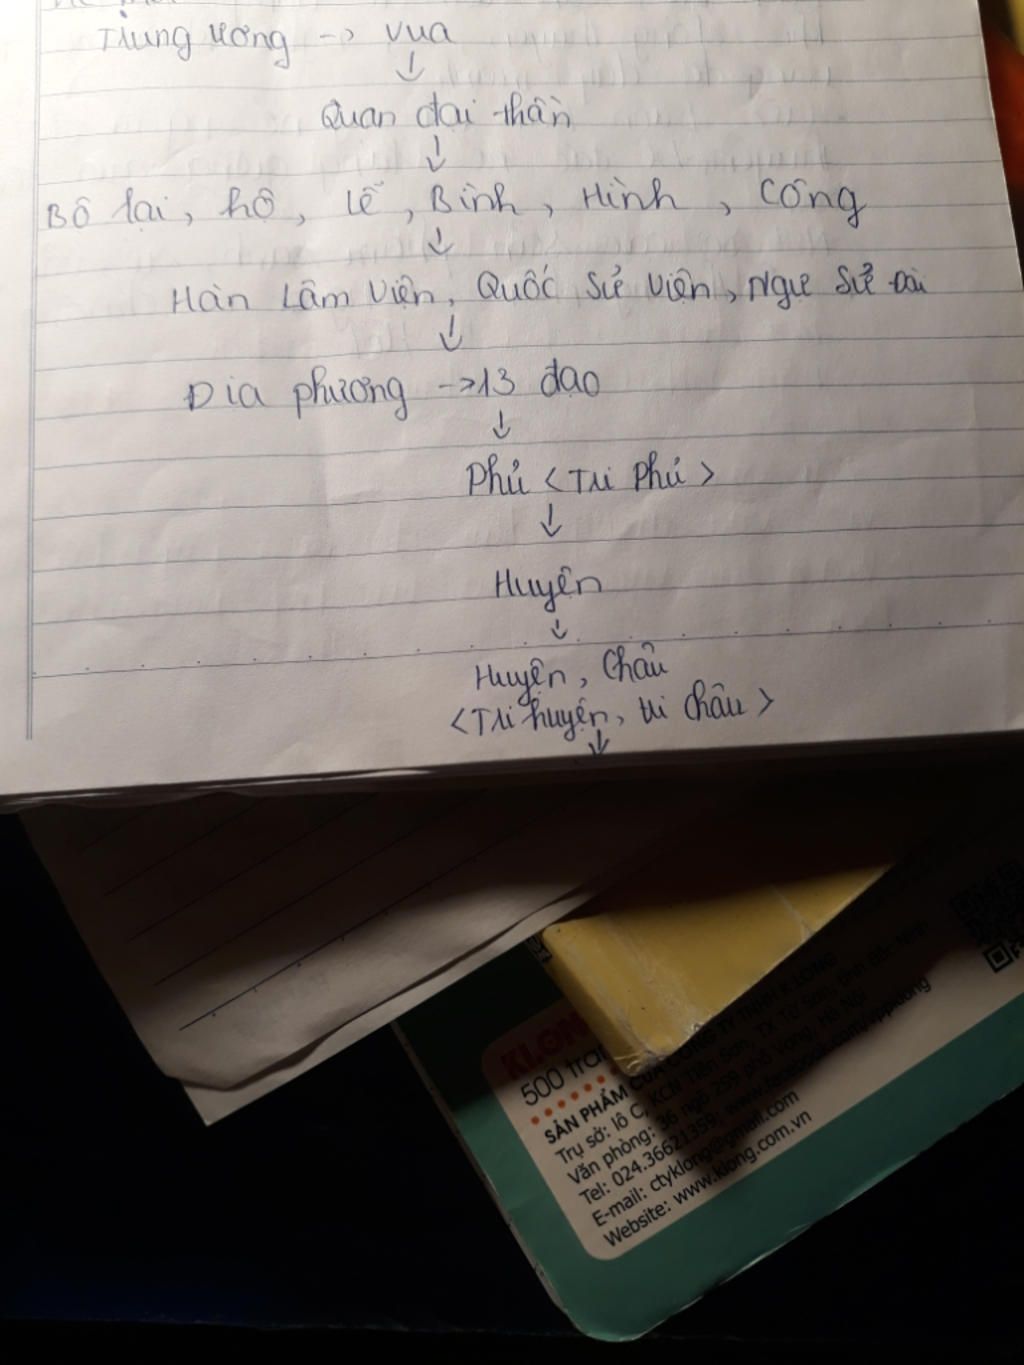 Trung ương -> vua
↓
Quan đại thần
↓
Bộ lại, hộ, lễ, Binh, Hình, Công
↓
Hàn Lâm Viện, Quốc Sử Viện, Ngự Sử Đài
↓
Địa phương -> 13 đạo
↓
Phủ <Tri Phủ>
↓
Huyện
↓
Huyện, Châu
<Tri huyện, tri châu>
↓
KLONG
500 tra
SẢN PHẨM CỦA CÔNG TY TNHH K.LONG
Trụ sở: lô C, KCN Tiên Sơn, TX Từ Sơn, tỉnh Bắc Ninh
Văn phòng: 36 ngõ 259 phố Vọng, Hà Nội
Tel: 024.36621359; www.facebook.com/
E-mail: ctyklong@gmail.com
Website: www.klong.com.vn